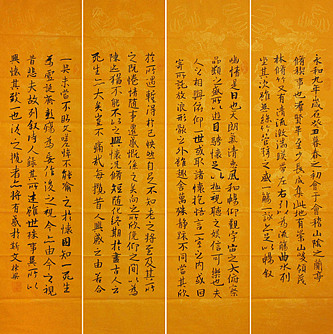 永和九年歲在癸丑暮春之初會于會稽山陰之蘭亭
脩稧事也羣賢畢至少長咸集此地有崇山峻領茂
林脩竹又有清流激湍映帶左右引以為流觴曲水列
坐其次雖無絲竹管弦之盛一觴一詠亦足以暢敘
幽情是日也天朗氣清惠風和暢仰觀宇宙之大俯察
品類之盛所以遊目騁懷足以極視聽之娛信可樂也夫
人之相與俯仰一世或取諸懷抱悟言一室之內或因
寄所託放浪形骸之外雖趣舍萬殊靜躁不同當其欣
於所遇暫得於己快然自足不知老之將至及其所
之既惓情隨事遷感慨係之矣向之所欣俛仰之間以為
陳迹猶不能不以之興懷況脩短隨化終期於盡古人云
死生亦大矣豈不痛哉每攬昔人興感之由若合
一契未嘗不臨文嗟悼不能喻之於懷固知一死生
為虛誕齊彭殤為妄作後之視今亦由今之視
昔悲夫故列敘時人錄其所述雖世殊事異所以
興懷其致一也後之攬者亦將有感於斯文